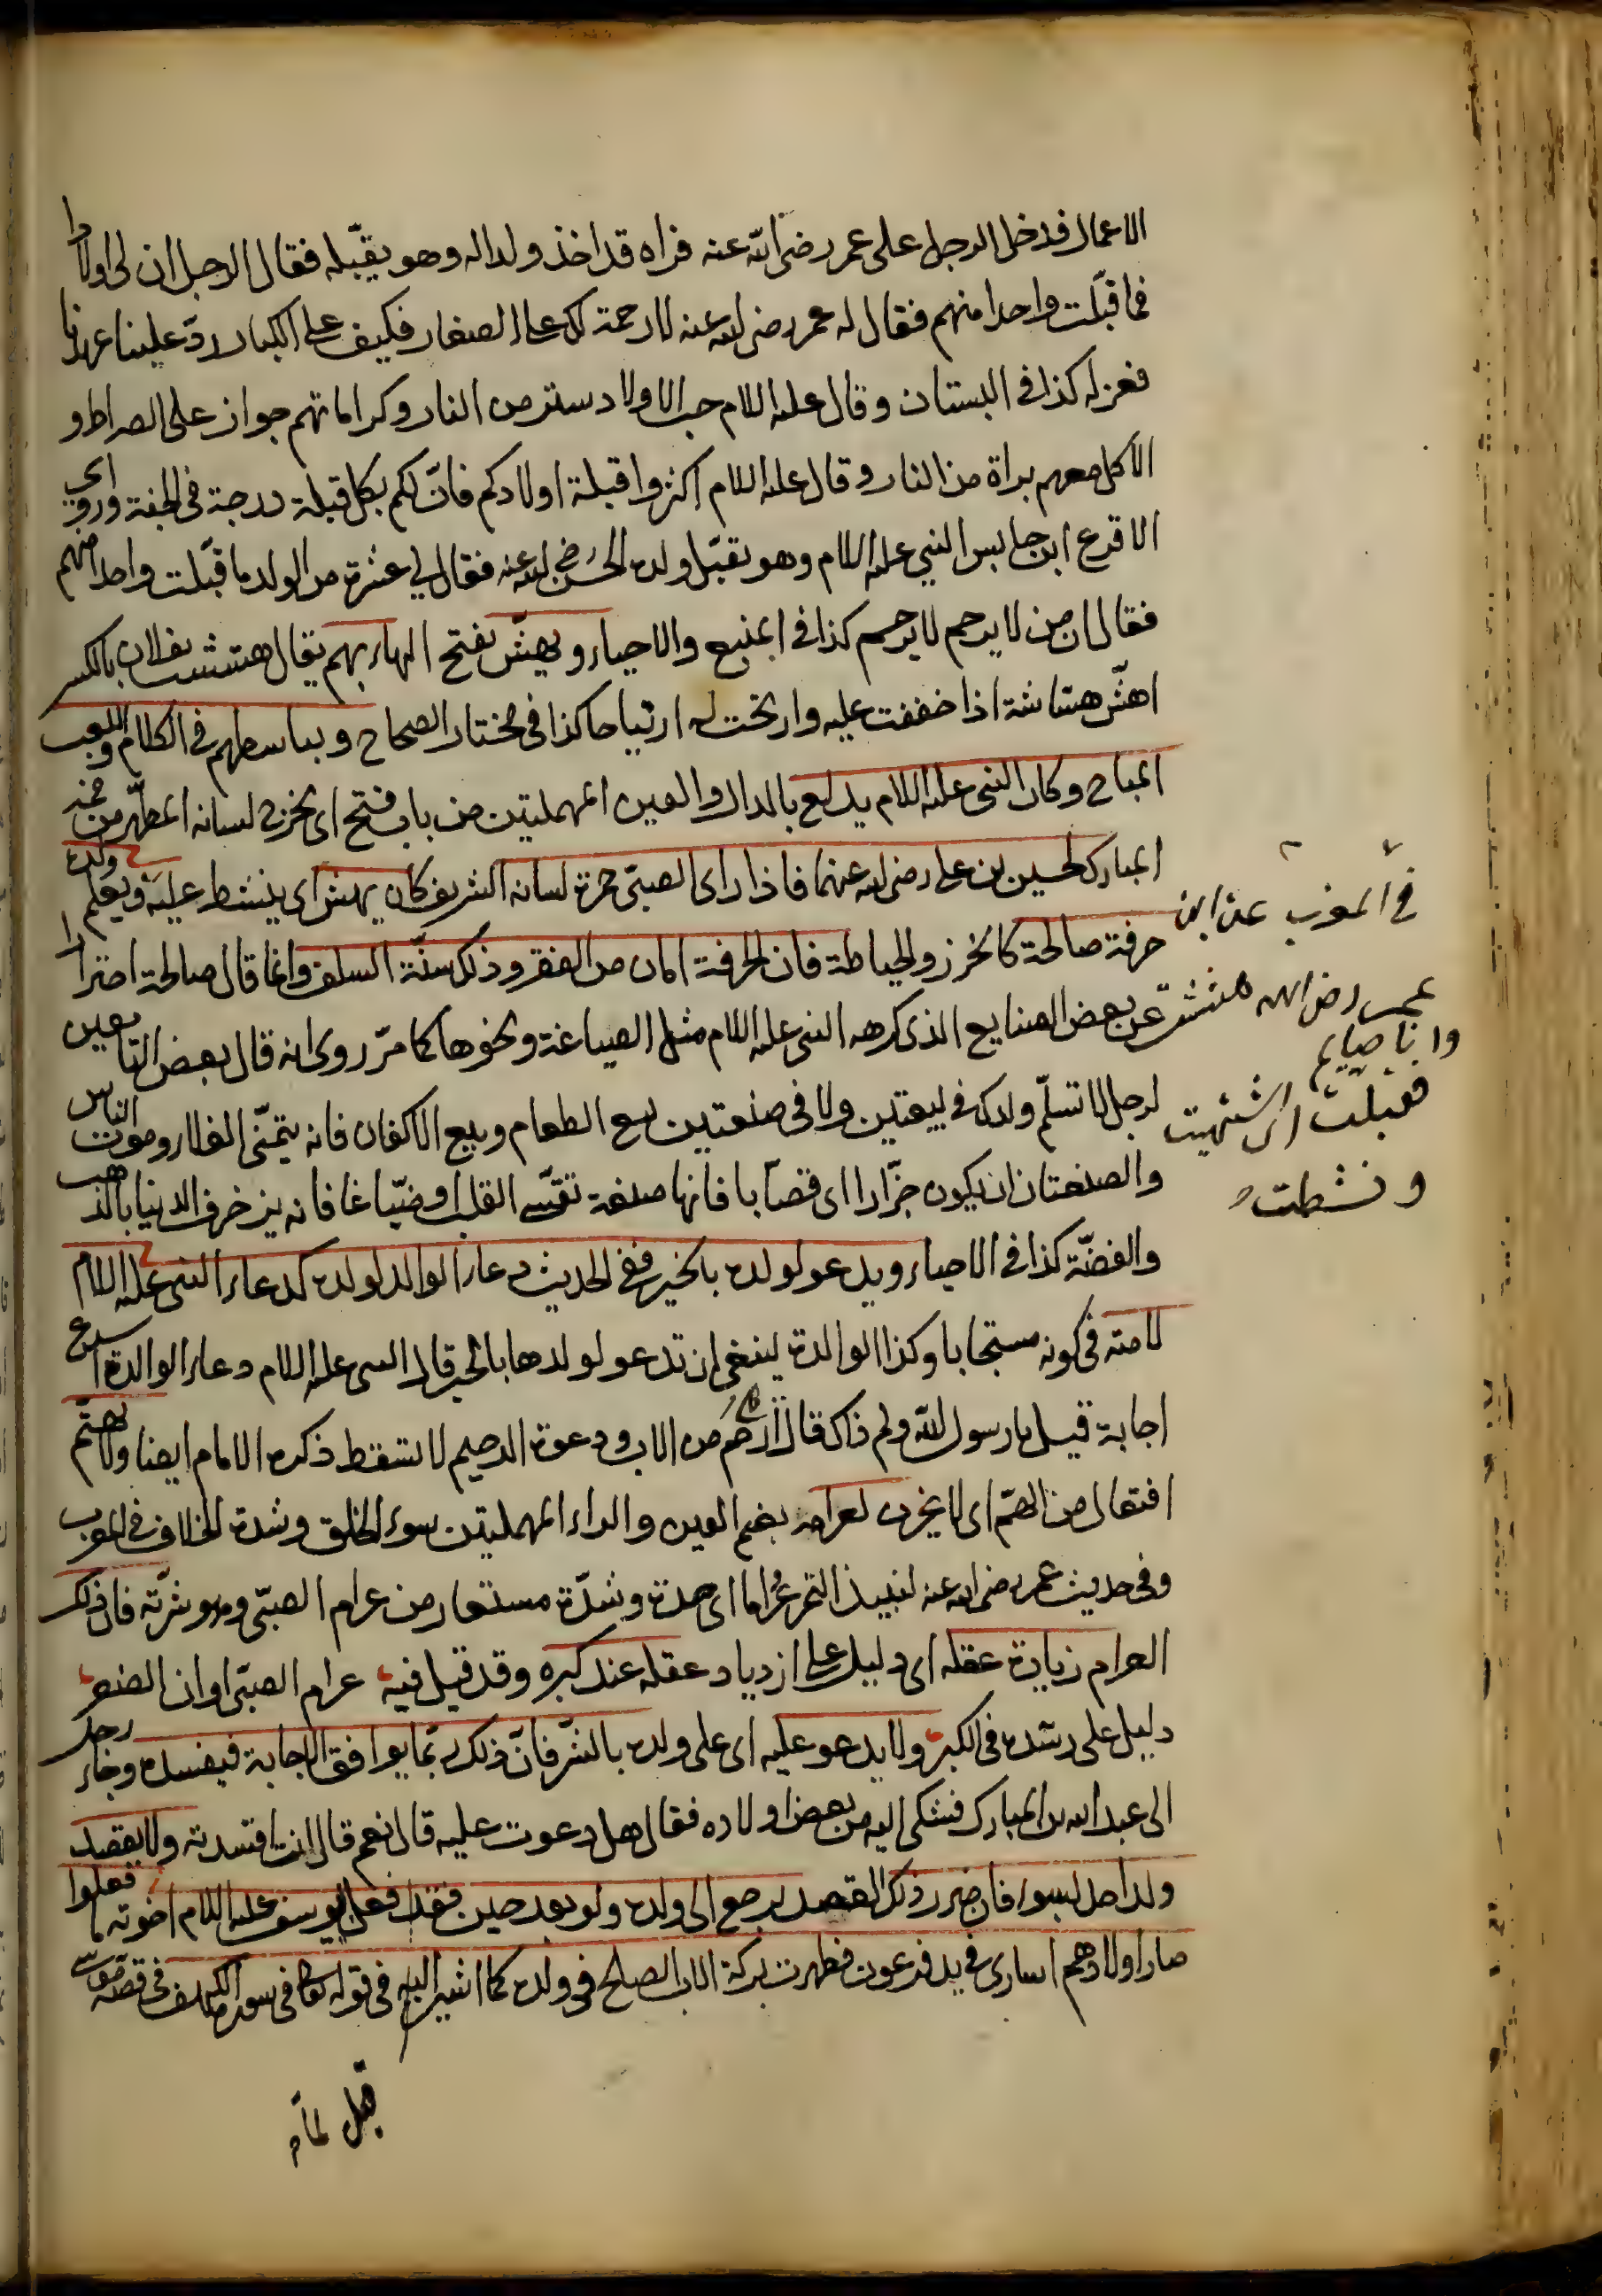 الاعمال فدخل الرجل على عمر رضى الله عنه فراه قد اخذ ولدا له وهو يقبّله فقال الرجل ان لى اولادا
فما قبّلت واحدا منهم فقال له عمر رضى الله عنه لا رحمة لك على الصغار فكيف على الكبار ردّ علينا عهدنا
فعزله كذا فى البستان وقال عليه السلام حب الاولاد ستر من النار وكراماتهم جواز على الصراط و
الاكل معهم براة من النار وقال عليه السلام اكثروا قبلة اولادكم فانّ لكم بكل قبلة درجة فى الجنة وروى اى
الاقرع ابن حابس النبي عليه السلام وهو يقبّل ولده الحسن رضى الله عنه فقال لي عشرة من الولد ما قبّلت واحدا منهم
فقال ان من لا يرحم لا يرحم كذا فى المنبع والاحياء ويهشّ بفتح الهاء بهم يقال هششت بفلان بالكسر
اهشّ هشاشة اذا خففت عليه وارتحت له ارتياحا كذا فى مختار الصحاح ويباسطهم فى الكلام واللعب
المباح وكان النبى عليه السلام يدلع بالدال والعين المهملتين من باب فتح اى يخرج لسانه المطهّر من فمه
المبارك لحسين بن على رضى الله عنهما فاذا راى الصبىّ حمرة لسانه الشريف كان يهشّ اى ينشط عليه ويعلم ولده
حرفة صالحة كالخرز والخياطة فان الحرفة امان من الفقر وذلك سنّة السلف وانما قال صالحة احترازا
عن بعض الصنايع الذى كرهه النبى عليه السلام مثل الصياغة ونحوها كما مرّ روى انه قال بعض التابعين
لرجل لا تسلّم ولدك فى بيعتين ولا فى صنعتين بيع الطعام وبيع الاكفان فانه يتمنّى الغلاء وموت الناس
والصنعتان ان يكون جزّارا اى قصّابا فانها صنعة تقسّى القلب او صيّاغا فانه يزخرف الدنيا بالذهب
والفضّة كذا فى الاحياء ويدعو لولده بالخير ففى الحديث دعاء الوالد لولده كدعاء النبى عليه السلام
لامته فى كونه مستجابا وكذا الوالدة ينبغى ان تدعو لولدها بالخير قال النبى عليه السلام دعاء الوالدة اسرع
اجابة قيل يا رسول الله ولم ذاك قال ارحم من الاب ودعوة الرحيم لا تسقط ذكره الامام ايضا ولا يهتمّ
افتعال من الهمّ اى لا يحزن لعرامه بضم العين والراء المهملتين سوء الخلق وشدة الخلاف فى المغرب
وفى حديث عمر رضى الله عنه لنبيذ التمر عُراما اى حدة وشدّة مستعار من عرام الصبّى وهو شرّته فان ذلك
العرام زيادة عقله اى دليل على ازدياد عقله عند كبره وقد قيل فيه عرام الصبّى اوان الصغر
دليل على رشده فى الكبر ولا يدعو عليه اى على ولده بالشّر فانّ ذلك ربّما يوافق الاجابة فيفسده وجاء رجل
الى عبد الله بن المبارك فشكى اليه من بعض اولاده فقال هل دعوت عليه قال نعم قال انت افسدته ولا يقصد
ولد احد بسوء فان ضرر ذلك القصد يرجع الى ولده ولو بعد حين فقد فعل بيوسف عليه السلام اخوته ما فعلوا
صار اولادهم اسارى فى يد فرعون فظهرت بركة الاب الصالح فى ولده كما اشير اليه فى قوله تعالى فى سورة الكهف فى قصة موسى
فى المغرب عن ابن
عمر رضى الله هششت
وانا صايم
فقبلت اى اشتهيت
ونشطت